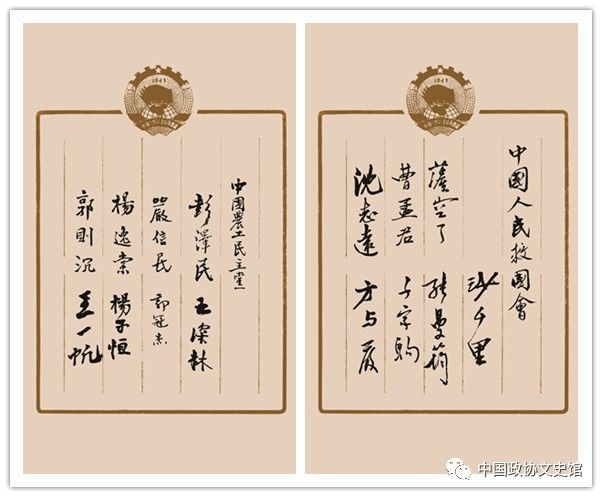 中國人民救國會
沙千里
薩空了 張曼筠
曹孟君 千家駒
沈志遠 方与嚴
中國農工民主黨
彭澤民 王深林
嚴信民 郭冠杰
楊逸棠 楊子恒
郭則沉 王一帆
中国政协文史馆